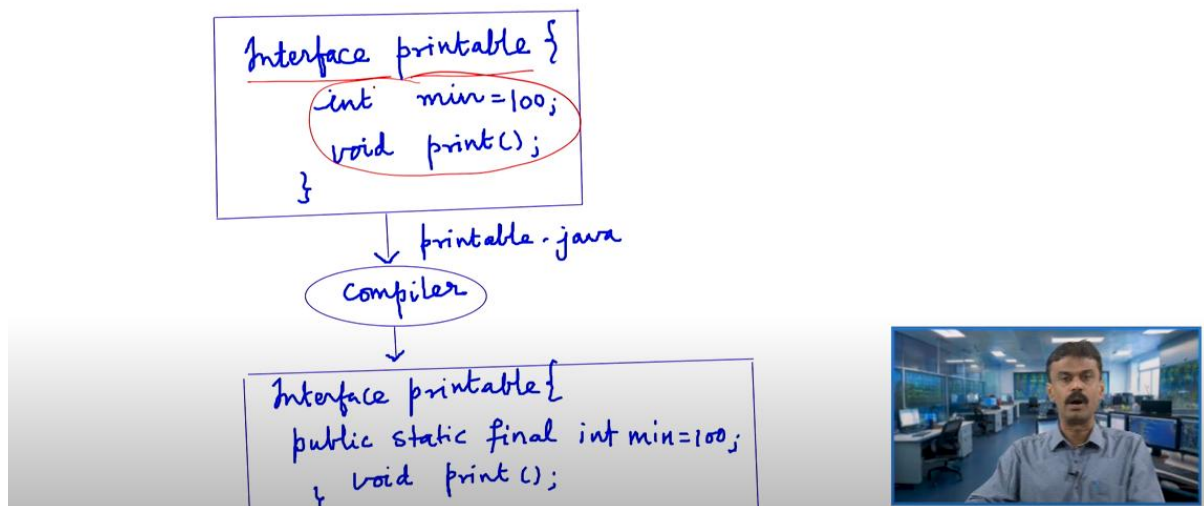 Interface printable {
int min=100;
void print();
}
printable.java
Compiler
Interface printable{
public static final int min=100;
void print();
}